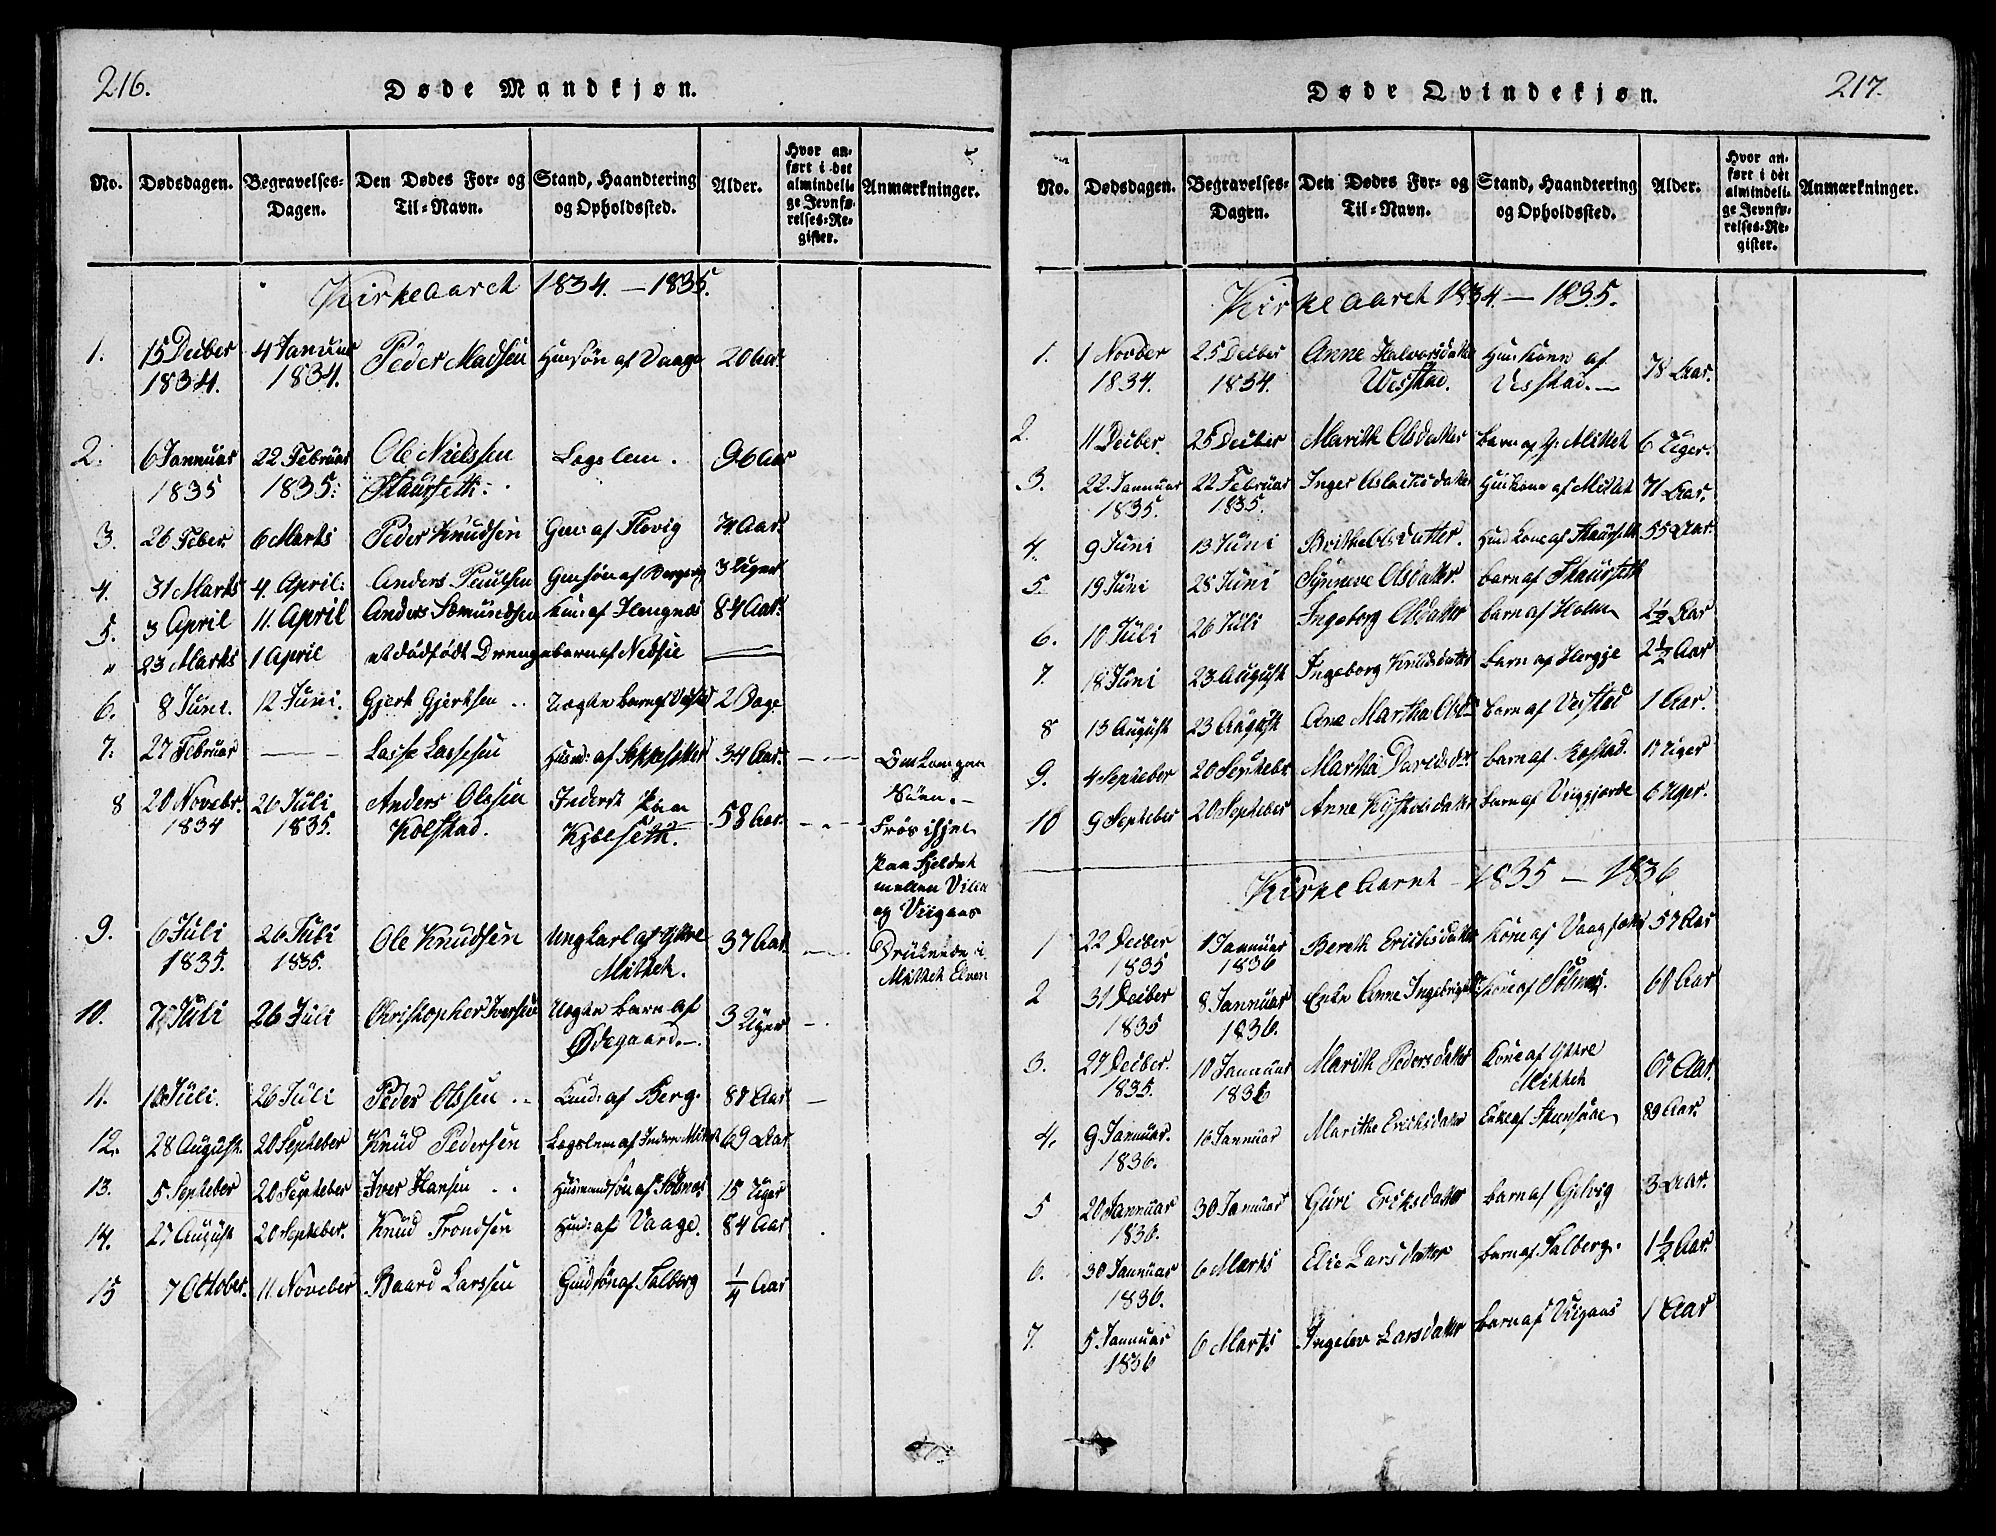 216.
Døde Mandkjøn.
No. Dødsdagen. Begravelses-Dagen. Den Dødes For- og Til-Navn. Stand, Haandtering og Opholdssted. Alder. Hvor anført i det almindelige Jevnførelses-Register. Anmærkninger.
Kirkeaaret 1834. — 1835.
1. 15 Decber 1834. 4 Januar 1834. Peder Madsen af Vaage 20 Aar.
2. 6 Januar 1835 22 Februar 1835. Ole Nielssen Staurseth. Lægslem. 96 Aar
3. 26 Feber 6 Marts Peder Knudsen af Flovig 74 Aar.
4. 31 Marts 4. April. Anders Paulsen 3 Uger
5. 3 April 11. April Anders Sæmundsen af 84 Aar.
" 23 Marts 1 April et dødfødt Drengebarn af Nedsie —
6. 8 Juni. 12 Juni. Gjert Gjertsen Uægte barn af 2 Dage
7. 27 Februar — Lasse Lassesen Husmd: af 34 Aar. Søen. —
8 20 Novebr. 1834 26 Juli 1835. Anders Olssen Kolstad. Inderst paa Kylseth. 58 Aar. — Frøs ihjel paa Fjeldet mellem Villa og Viigaas
9. 6 Juli 1835. 26 Juli 1835. Ole Knudsen Ungkarl af Yttre Mittet. 37 Aar. — Druknede i Mittet Elven
10. 7 Juli 26 Juli Christopher Iversen Uægte barn af Ødegaard. — 3 Uger —
11. 10 Juli. 26 Juli Peder Olssen af Berg. 87 Aar. —
12. 28 August. 20 Septeber Knud Pedersen Lægslem af Indre Mittet 69 Aar.
13. 5 Septeber 20 Septeber Iver Hansen Husmandssøn af Sølsnæs 15 Uger
14. 27 August 20 Septeber. Knud Trondsen af Vaage. 84 Aar.
15 7 October. 11 Noveber Baard Larssen Gmdsøn af Talberg 1/4 Aar
217.
Døde Qvindekjøn.
No. Dødsdagen. Begravelses-Dagen. Den Dødes For- og Til-Navn. Stand, Haandtering og Opholdssted. Alder. Hvor anført i det almindelige Jevnførelses-Register. Anmærkninger.
Kirkeaaret 1834. — 1835.
1. 1 Novber 1834. 25 Decber 1834. Anne Halvorsdatter Vestad. Huuskone af Vestad. — 78 Aar.
2. 11 Decber. 25 Decber Marith Olsdatter barn af Y: Mittet 6 Uger.
3. 22 Januar 1835. 22 Februar 1835. Inger Aslacksdatter Huskone af Mittet 71 Aar.
4. 9 Juni 13 Juni Brithe Olsdatter. kone af Staurseth 55 Aar.
5. 19 Juni 28 Juni Synneve Olsdatter. barn af Staurseth
6. 10 Juli 26 Juli Ingeborg Olsdatter barn af Holm 2 1/2 Aar
7. 18 Juni 23 August Ingeborg Knudsdatter barn af Herje 2 1/2 Aar
8 13 August 23 August Ane Martha Olsd barn af Vestad 1 Aar.
9. 4 Septeber 20 Septebr Martha barn af Kolstad. 17 Uger
10 9 Septeber 20 Septeber Anne barn af 6 Uger.
Kirkeaaret 1835 — 1836
1 22 Decber 1835 1 Januar 1836 Bereth Erichsdatter kone af 57 Aar
2 31 Decber 1835 8 Januar 1836. Enke Anne kone af Sølsnæs. 60 Aar
3. 27 Decber. 1835. 10 Januar 1836 Marith Pedersdatter Kone af Yttre Mittet 67 Aar.
4. 9 Januar. 1836. 16 Januar Marithe Erichsdatter Enke af 89 Aar.
5 20 Januar 1836. 30 Januar Guri Eriksdatter barn af Gjelvig 3 Aar.
6. 30 Januar 1836. 6 Marts Elie Larsdatter barn af Talberg. 1 1/2 Aar.
7. 5. Januar 1836 6 Marts Ingelev Larsdatter barn af Viigaas 1 Aar